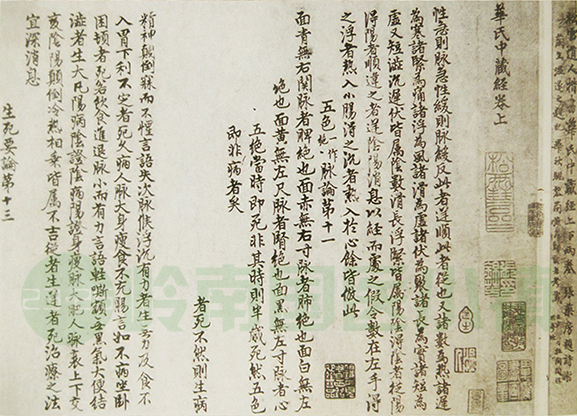 華氏中藏經卷上
性急則脉急性緩則脉緩反此者逆順此者從也又諸數為熱諸遲
為寒諸緊為痛諸浮為風諸滑為虛諸伏為聚諸長為實諸短為
虛又短澁沉遲伏皆屬陰數滑長浮緊皆屬陽陰得陰者從陽
得陽者順違之者逆陰陽消息以經而處之假令數在左手得
之浮者熱入小腸得之沉者熱入於心餘皆倣此
五色一作絕脉論第十一
面青無右関脉者脾絕也面赤無右寸脉者肺絕也面白無左
絕也面黃無左尺脉者腎絕也面黑無左寸脉者心
五絕當時即死非其時則半歲死然五色
即非病者矣
者死不然則生病
精神顛倒寐而不惺言語失次脉候浮沉有力者生無力及食不
入胃下利不定者死久病人脉大身瘦食不充腸言如不病坐卧
困頓者死若飲食進退脉小而有力言語輕嘶額無黑氣大便結
澁者生大凡陽病陰證陰病陽證身瘦脉大肥人脉衰上下交
變陰陽顛倒冷熱相乘皆屬不吉從者生逆者死治療之法
宜深消息
生死要論第十三